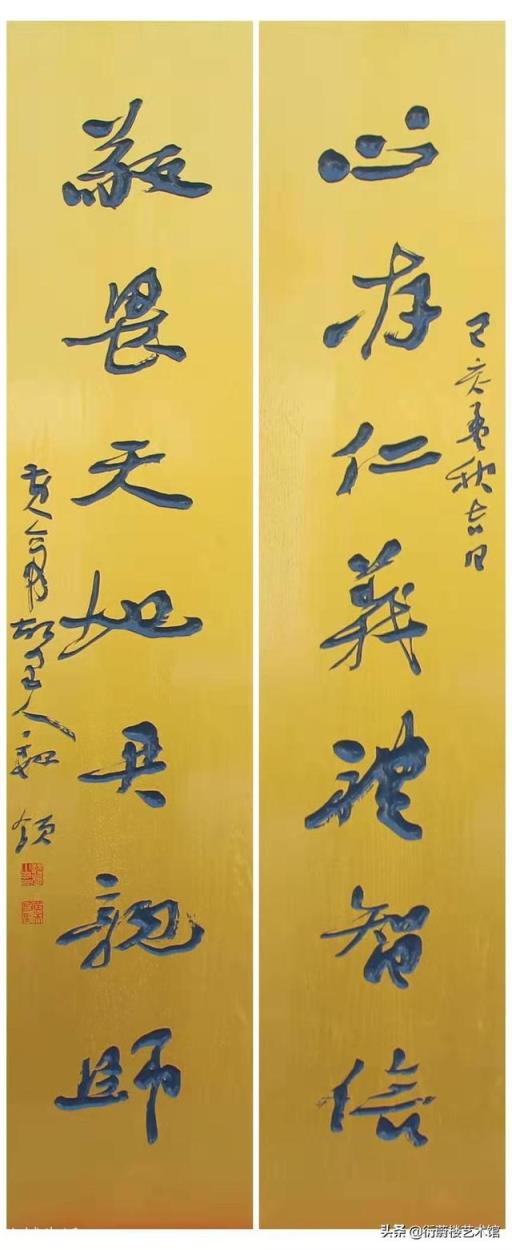 心存仁義禮智信
己亥孟秋吉日
敬畏天地君親師
故里人
头条 @衍蔚楼艺术馆